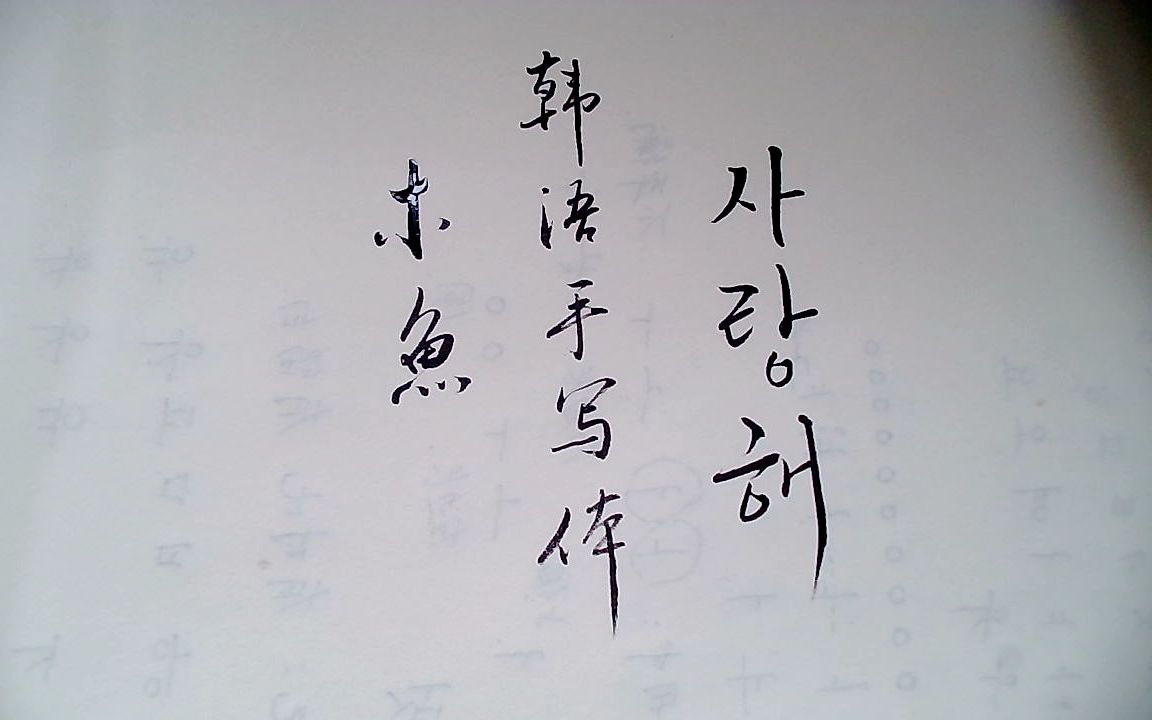 사랑해
韩语手写体
木魚